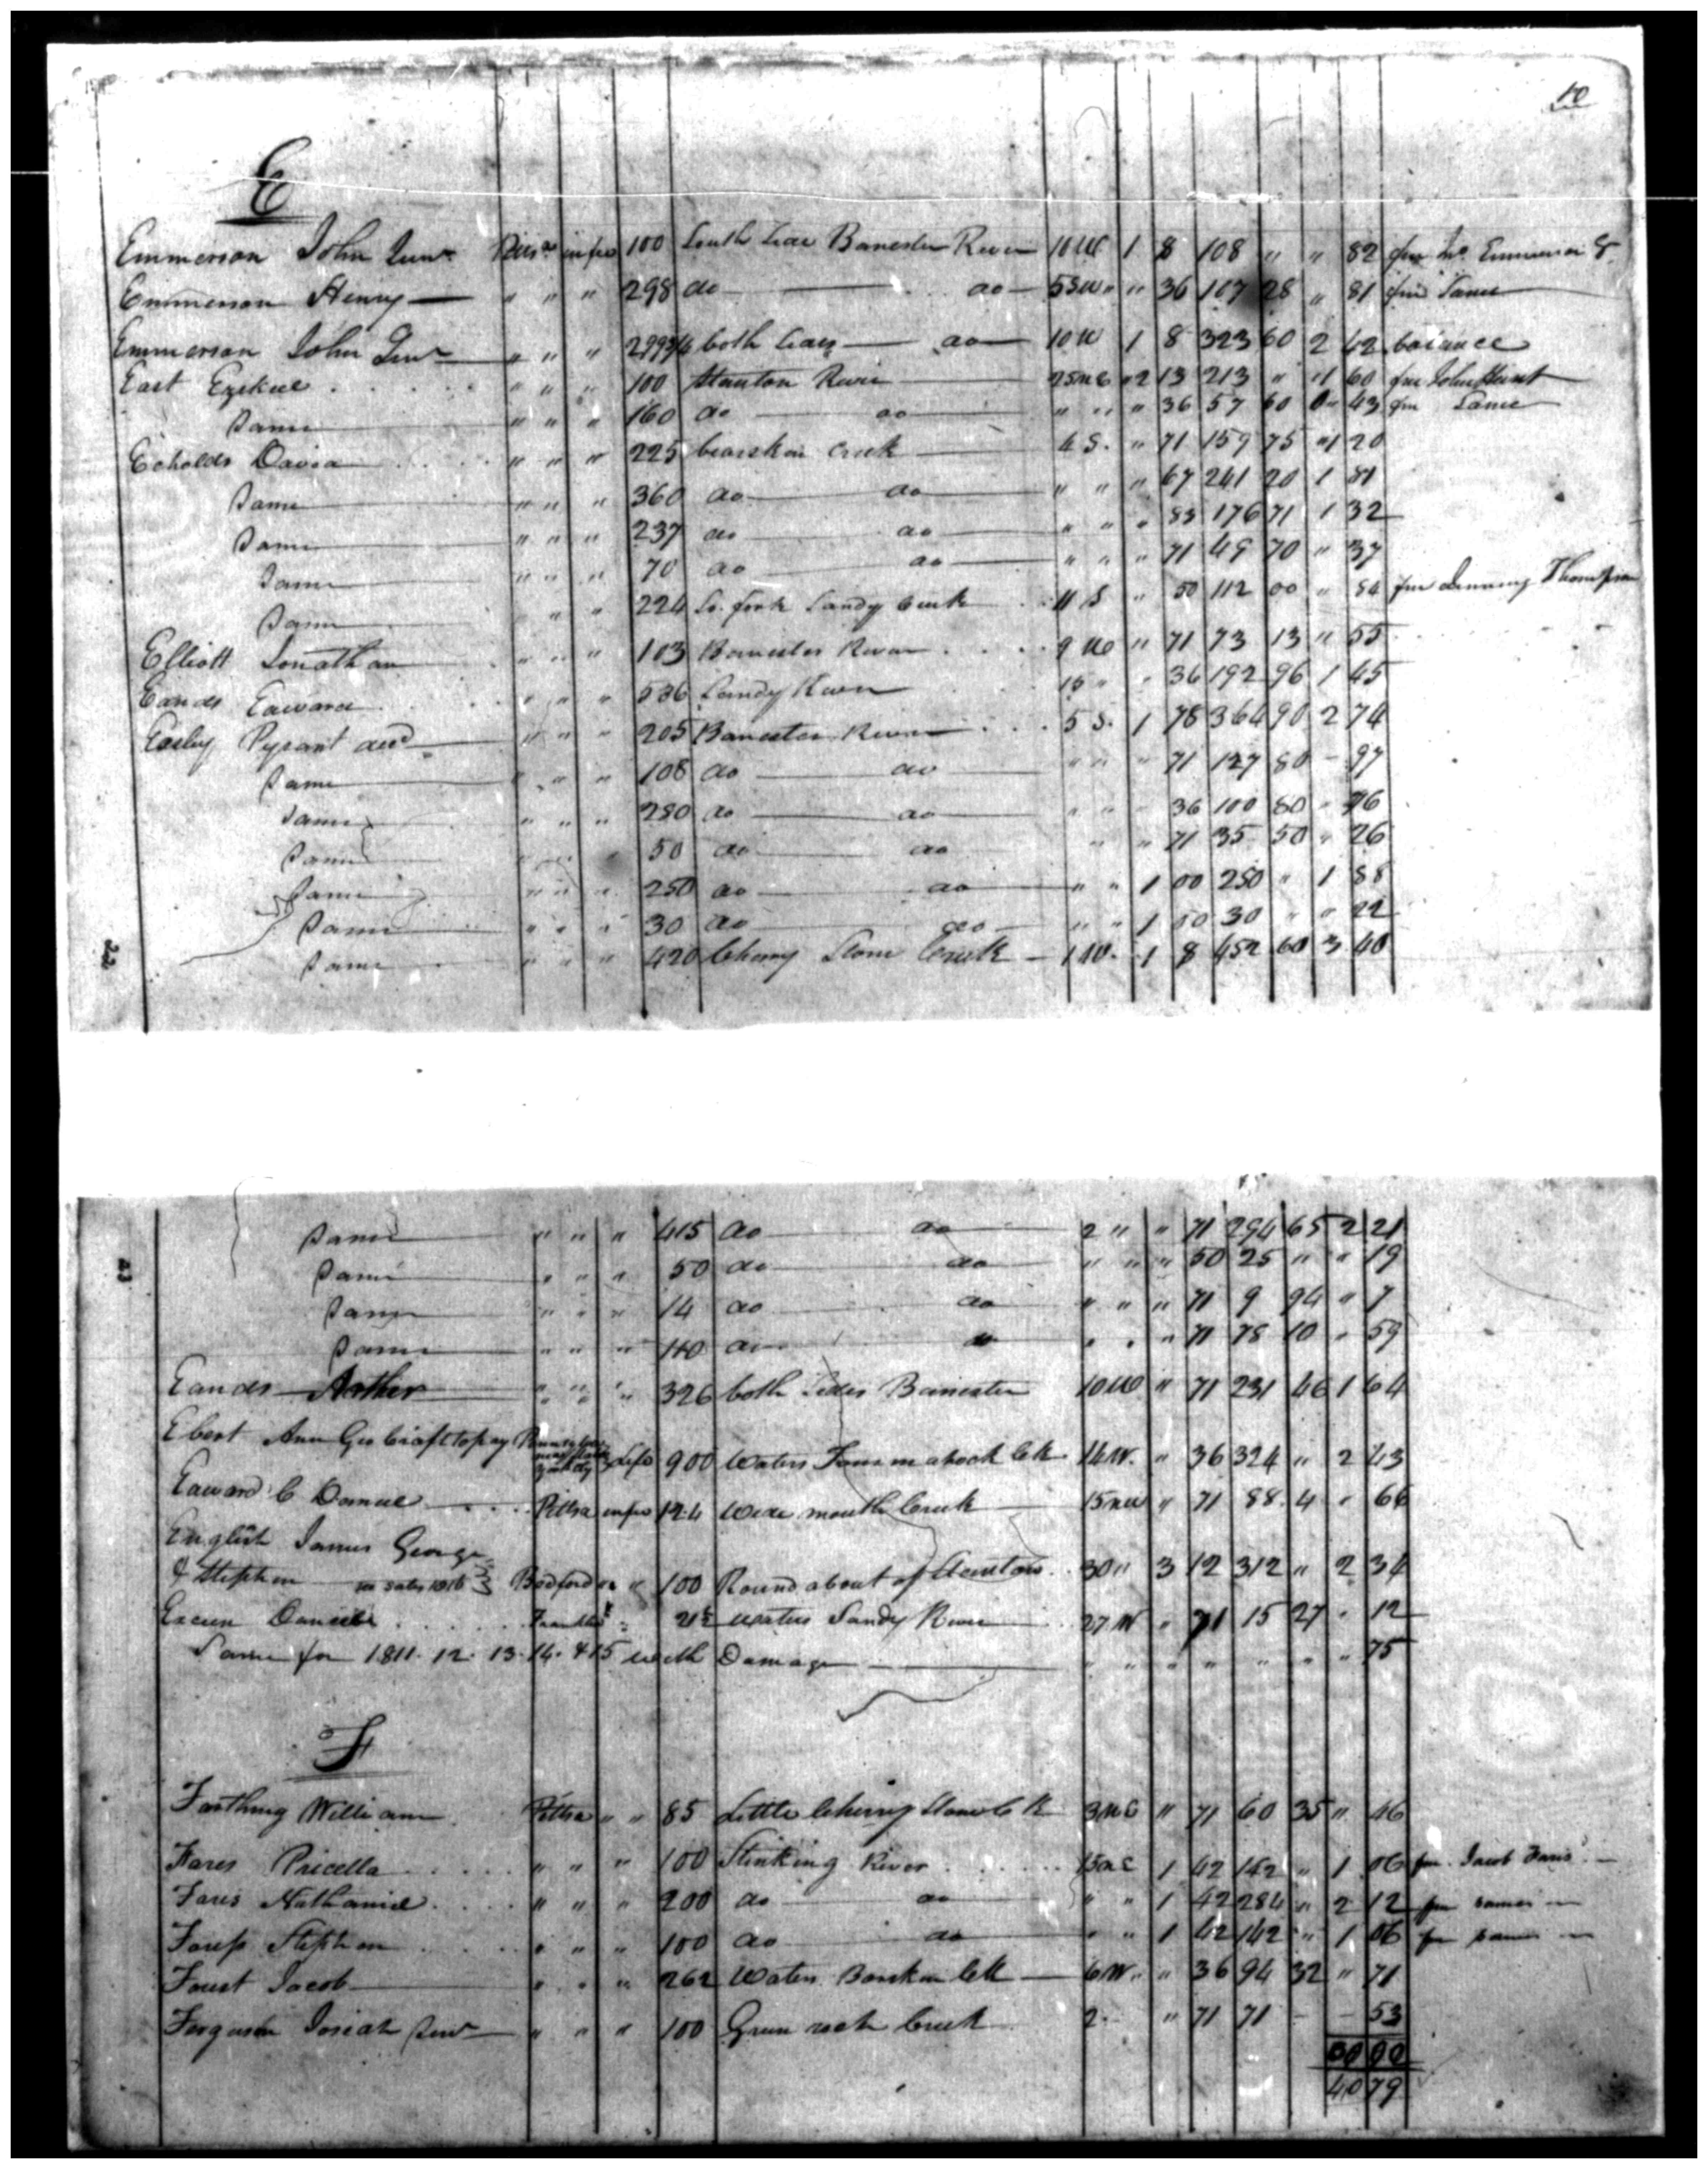 10
E
Emmerson John Junr Pittsa in fee 100 South side Banester River 10 W 1 8 108 " " 82 from Jno Emmerson S.
Emmerson Henry " " " 298 do do 5 SW " " 36 107 28 " 81 from Same
Emmerson John Junr " " " 299 3/4 both sides do 10 W 1 8 323 60 2 42 balance
East Ezekiel " " " 100 Stanton River 25 NE 2 13 213 " 1 60 from John Hunt
Same " " " 160 do do " " " 36 57 60 " 43 from Same
Echolds David " " " 225 bearskin Creek 4 S. " 71 159 75 1 20
Same " " " 360 do do " " " 67 241 20 1 81
Same " " " 237 do do " " " 83 176 71 1 32
Same " " " 70 do do " " " 71 49 70 " 37
Same " " " 224 So. fork Sandy Creek 11 S " 50 112 00 " 84 from Thompson
Elliott Jonathan " " " 103 Banester River 9 W " 71 73 13 " 55
Eands Edward " " " 536 Sandy River 15 " " 36 192 96 1 45
Easley Pyrant decd " " " 205 Banester River 5 S. 1 78 364 90 2 74
Same " " " 108 do do " " " 71 127 80 - 97
Same " " " 280 do do " " 36 100 80 " 76
Same " " " 50 do do " " 71 35 50 " 26
Same " " " 250 do do " " 1 00 250 " 1 88
Same " " " 30 do do " " 1 00 30 " " 22
Same " " " 420 Cherry Stone Creek 1 W. 1 8 452 60 3 40
22
Same " " " 415 do do 2 " " 71 294 65 2 21
43
Same " " " 50 do do " " " 50 25 " " 19
Same " " " 14 do do " " " 71 9 94 " 7
Same " " " 110 do do " " " 71 78 10 " 59
Eands Arther " " " 326 both sides Banester 10 W " 71 231 46 1 64
Ebert Ann Geo Craft to pay life 900 Waters Tomma hock Ck 14 W. " 36 324 " 2 43
Edward C Daniel Pittsa in fee 124 Wide mouth Creek 15 NW " 71 88 4 " 66
English James George
& Stephen Bedford do " 100 Round about of Stanton 30 " 3 12 312 " 2 34
Daniel " 21 1/2 waters Sandy River 27 W " 71 15 27 " 12
Same for 1811. 12. 13. 14. & 15 with Damage " " " " " " " 75
F
Farthing William Pittsa " " 85 Little Cherry Stone Ck 3 NE " 71 60 35 " 46
Fares Pricella " " " 100 Stinking River 15 NE 1 42 142 " 1 06 from Jacob Faris
Faris Nathaniel " " " 200 do do " " 1 42 284 " 2 12 from same
Fariss Stephen " " " 100 do do " " 1 42 142 " 1 06 from same
Foust Jacob " " " 262 Waters Barskin Ck 6 W. " 36 94 32 " 71
Ferguson Josiah Junr " " " 100 Green rock Creek 2 " " 71 71 - - 53
00 00
40 79